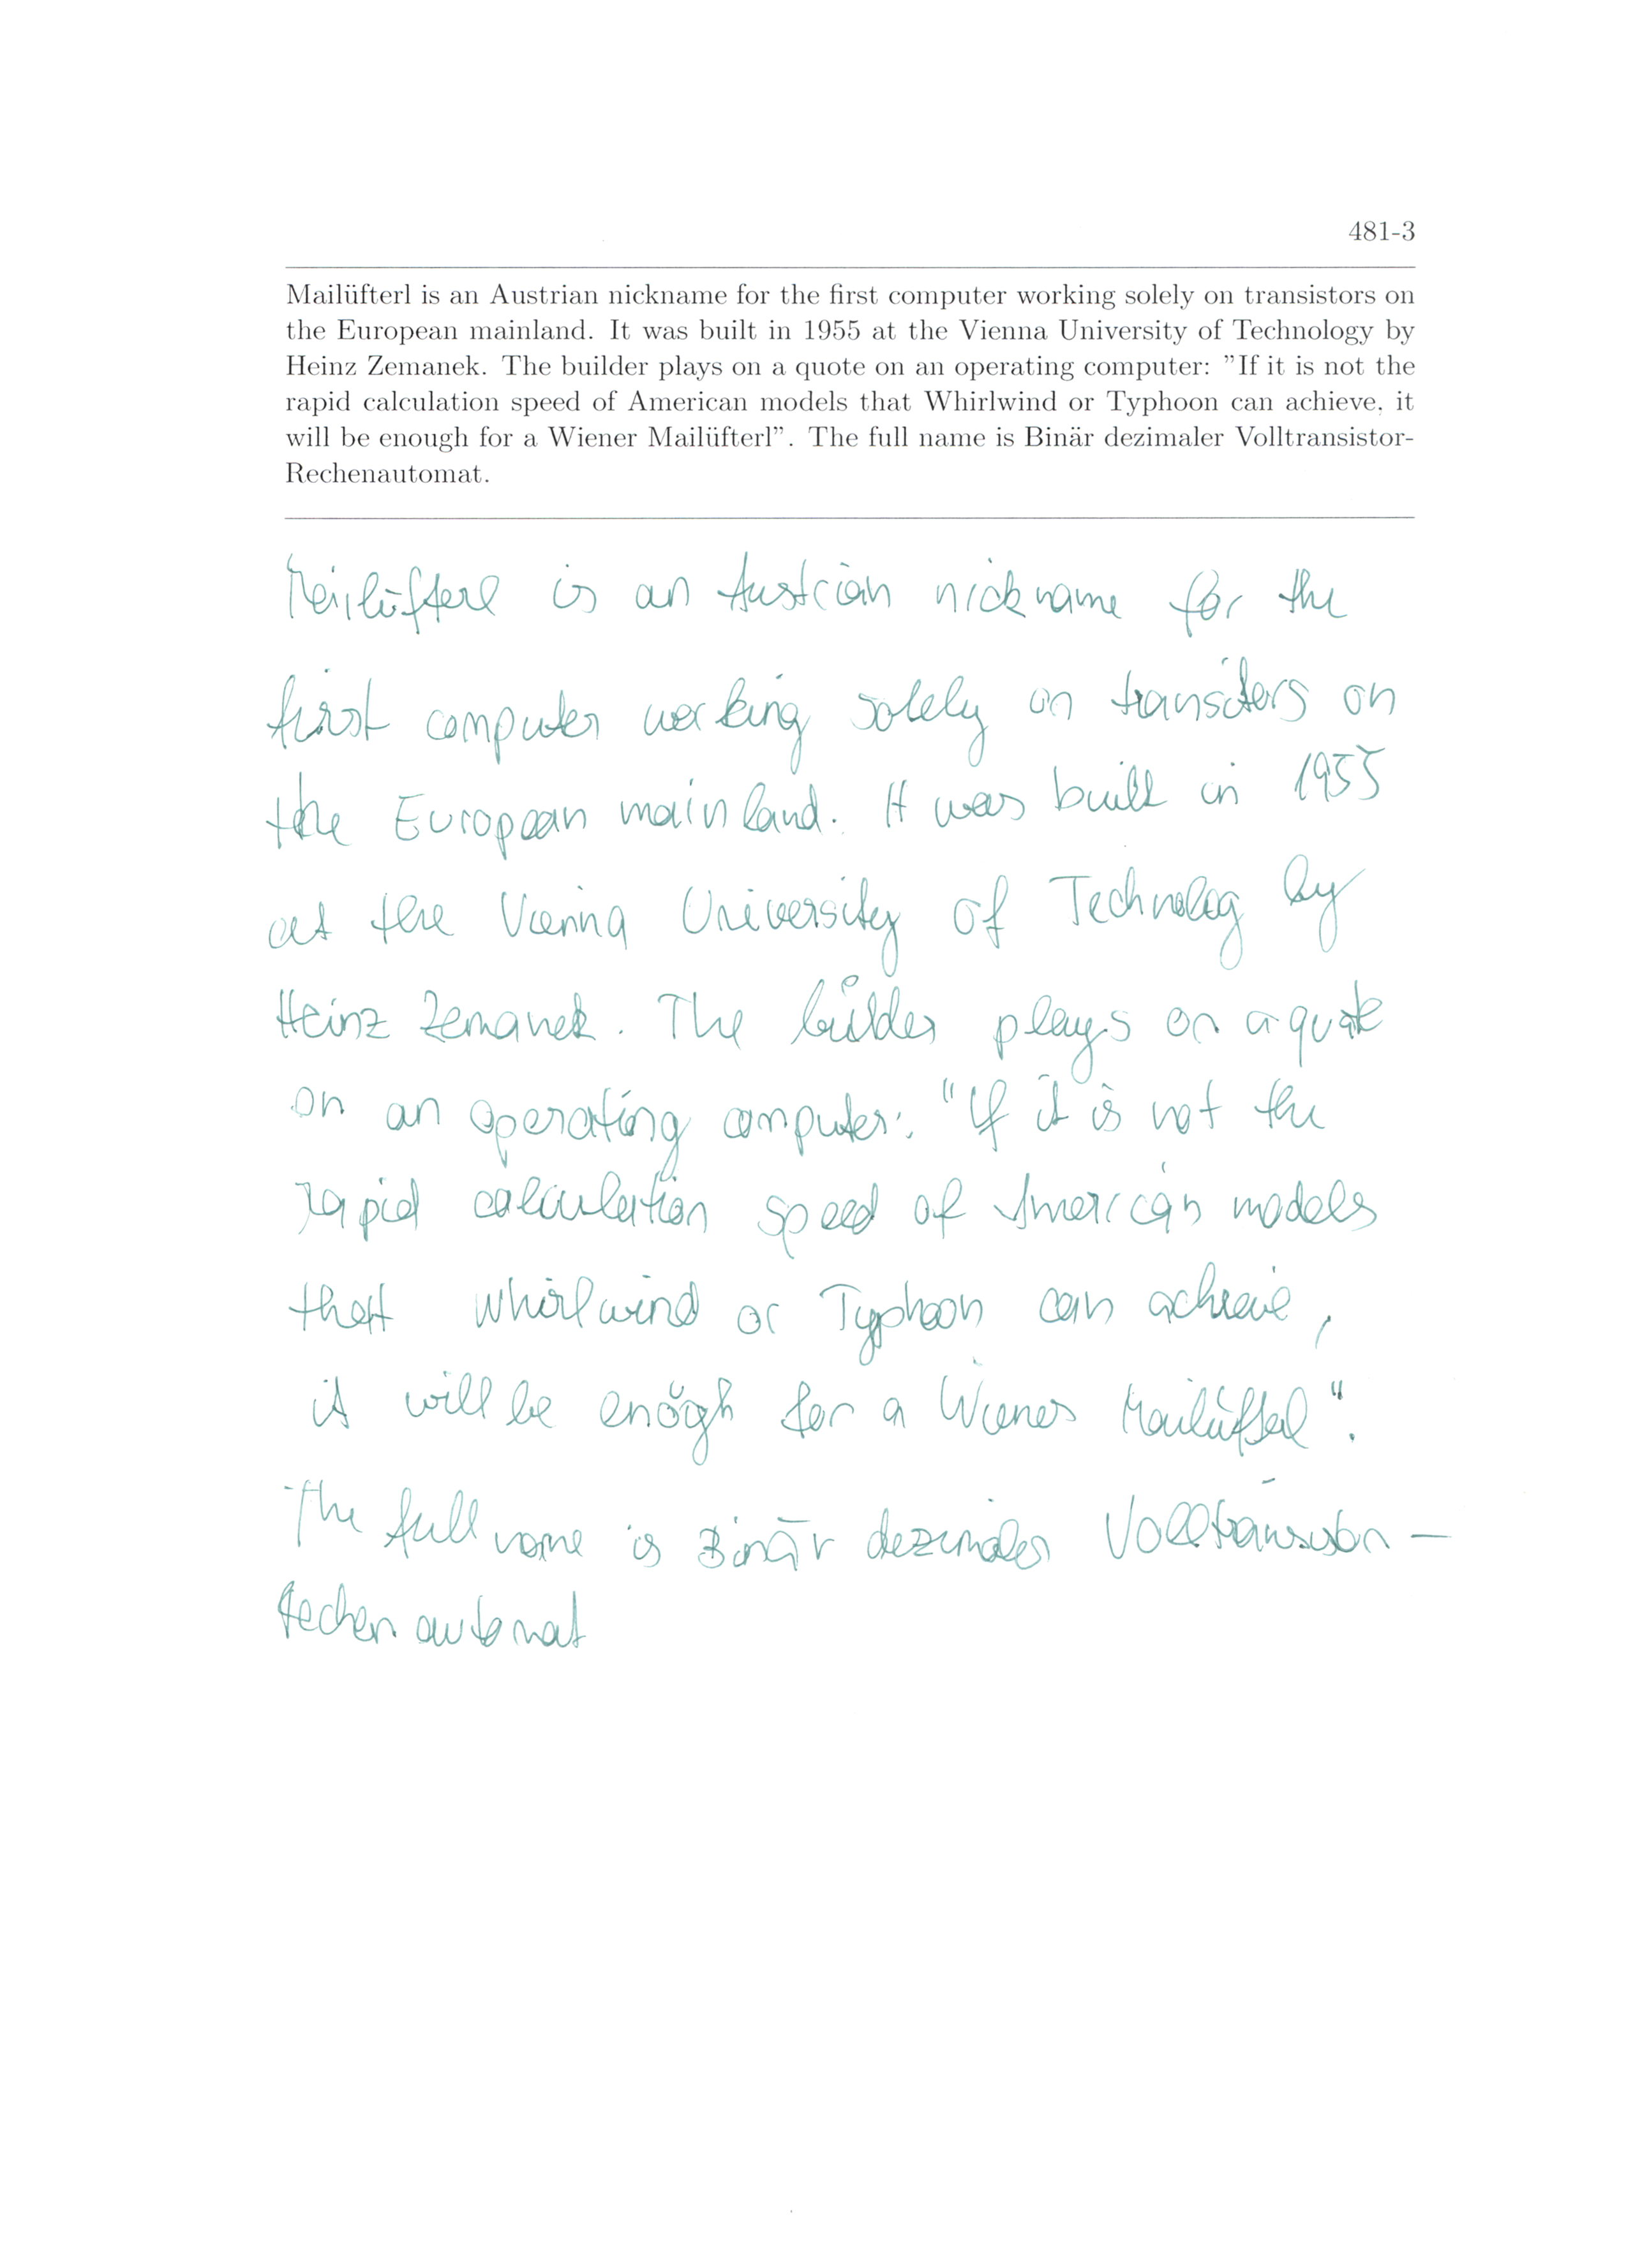 481-3
Mailüfterl is an Austrian nickname for the first computer working solely on transistors on
the European mainland. It was built in 1955 at the Vienna University of Technology by
Heinz Zemanek. The builder plays on a quote on an operating computer: "If it is not the
rapid calculation speed of American models that Whirlwind or Typhoon can achieve, it
will be enough for a Wiener Mailüfterl". The full name is Binär dezimaler Volltransistor-
Rechenautomat.
Mailüfterl is an Austrian nickname for the
first computer working solely on transitors on
the European mainland. It was built in 1955
at the Vienna University of Technolog by
Heinz Zemanek. The builder plays on a quote
on an operating computer: "If it is not the
rapid calculation speed of American models
that whirlwind or Typhoon can achieve,
it will be enough for a Wiener Mailüfterl".
The full name is Binär dezimaler Volltransistor-
Rechenautomat